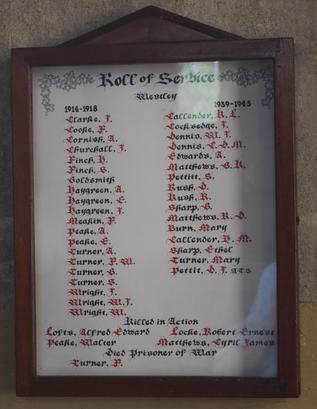 Roll of Service
Westley
1914-1918
Clarke, J.
Cooke, F.
Cornish, A.
Churchall, J.
Finch, H.
Finch, S.
Goldsmith
Haygreen, A.
Haygreen, E.
Haygreen, J.
Meakin, F.
Peake, A.
Peake, E.
Turner, A.
Turner, F. W.
Turner, G.
Turner, S.
Wright, J.
Wright, W.J.
Wright, W.
1939-1945
Callender, R. L.
Locksedge, J.
Dennis, W. J.
Dennis, L. D. M.
Edwards, A.
Matthews, G. R.
Pettitt, S.
Rush, D.
Rush, R.
Sharp, G.
Matthews, R. D.
Burn, Mary
Callender, H. M.
Sharp, Ethel
Turner, Mary
Pettit, D. J. A.T.S
Killed in Action
Lofts, Alfred Edward Locke, Robert Ernest
Peake, Walter Matthews, Cyril James
Died Prisoner of War
Turner, F.